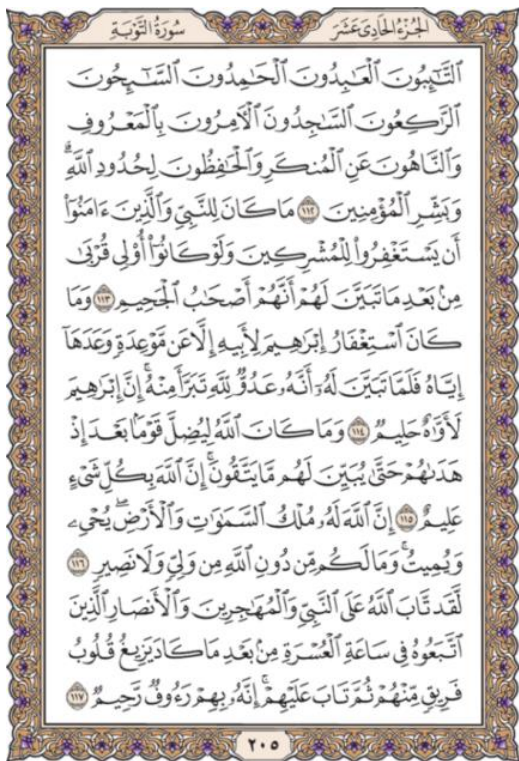 الجُزْءُ الحَادِى عَشَرَ
سُورَةُ التَّوْبَةِ
ٱلتَّٰٓئِبُونَ ٱلْعَٰبِدُونَ ٱلْحَٰمِدُونَ ٱلسَّٰٓئِحُونَ
ٱلرَّٰكِعُونَ ٱلسَّٰجِدُونَ ٱلْءَامِرُونَ بِٱلْمَعْرُوفِ
وَٱلنَّاهُونَ عَنِ ٱلْمُنكَرِ وَٱلْحَٰفِظُونَ لِحُدُودِ ٱللَّهِۗ
وَبَشِّرِ ٱلْمُؤْمِنِينَ ١١٢ مَا كَانَ لِلنَّبِىِّ وَٱلَّذِينَ ءَامَنُوٓا۟
أَن يَسْتَغْفِرُوا۟ لِلْمُشْرِكِينَ وَلَوْ كَانُوٓا۟ أُو۟لِى قُرْبَىٰ
مِنۢ بَعْدِ مَا تَبَيَّنَ لَهُمْ أَنَّهُمْ أَصْحَٰبُ ٱلْجَحِيمِ ١١٣ وَمَا
كَانَ ٱسْتِغْفَارُ إِبْرَٰهِيمَ لِأَبِيهِ إِلَّا عَن مَّوْعِدَةٍ وَعَدَهَآ
إِيَّاهُ فَلَمَّا تَبَيَّنَ لَهُۥٓ أَنَّهُۥ عَدُوٌّ لِّلَّهِ تَبَرَّأَ مِنْهُۚ إِنَّ إِبْرَٰهِيمَ
لَأَوَّٰهٌ حَلِيمٌ ١١٤ وَمَا كَانَ ٱللَّهُ لِيُضِلَّ قَوْمًۢا بَعْدَ إِذْ
هَدَىٰهُمْ حَتَّىٰ يُبَيِّنَ لَهُم مَّا يَتَّقُونَۚ إِنَّ ٱللَّهَ بِكُلِّ شَىْءٍ
عَلِيمٌ ١١٥ إِنَّ ٱللَّهَ لَهُۥ مُلْكُ ٱلسَّمَٰوَٰتِ وَٱلْأَرْضِۖ يُحْىِۦ
وَيُمِيتُۚ وَمَا لَكُم مِّن دُونِ ٱللَّهِ مِن وَلِىٍّ وَلَا نَصِيرٍ ١١٦
لَّقَد تَّابَ ٱللَّهُ عَلَى ٱلنَّبِىِّ وَٱلْمُهَٰجِرِينَ وَٱلْأَنصَارِ ٱلَّذِينَ
ٱتَّبَعُوهُ فِى سَاعَةِ ٱلْعُسْرَةِ مِنۢ بَعْدِ مَا كَادَ يَزِيغُ قُلُوبُ
فَرِيقٍ مِّنْهُمْ ثُمَّ تَابَ عَلَيْهِمْۚ إِنَّهُۥ بِهِمْ رَءُوفٌ رَّحِيمٌ ١١٧
٢٠٥